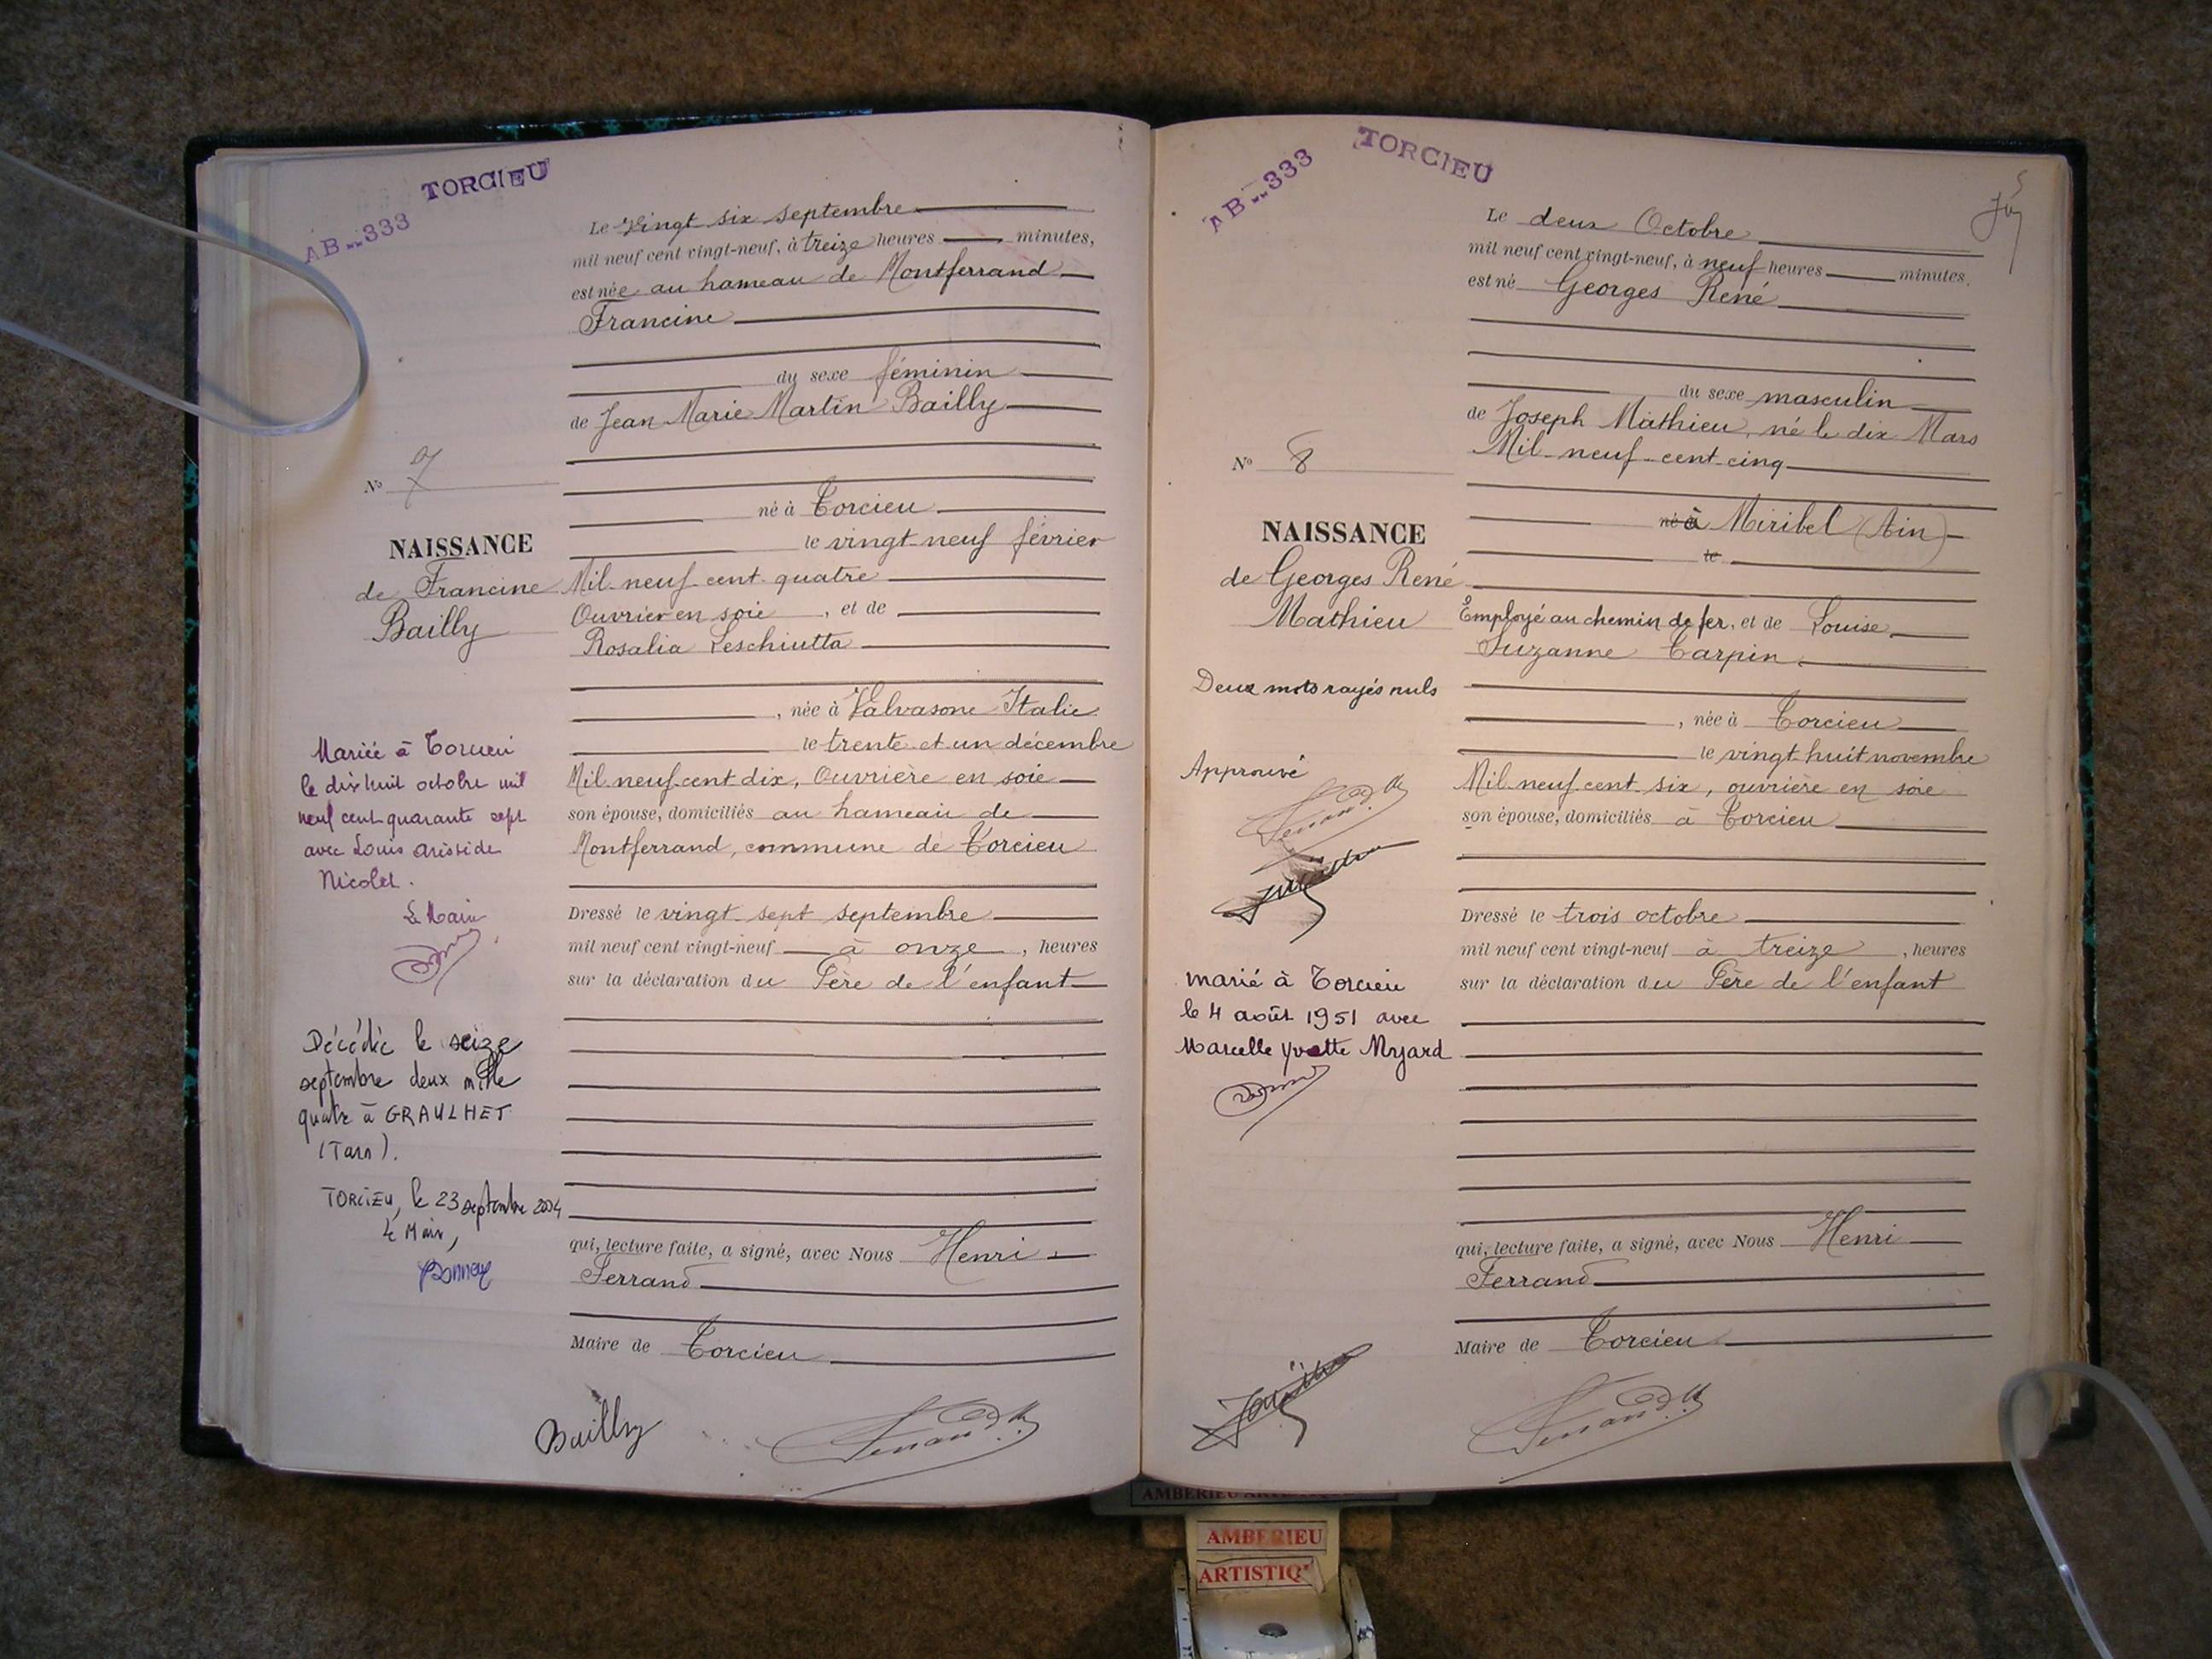 TORCIEU
AB...333
Le vingt six septembre
mil neuf cent vingt-neuf, à treize heures minutes,
est née au hameau de Montferrand
Francine
du sexe féminin
de Jean Marie Martin Bailly
No 7
né à Torcieu
le vingt neuf février
NAISSANCE
de Francine
Bailly
Mil neuf cent quatre
Ouvrier en soie, et de
Rosalia Leschiutta
, née à Valvasone Italie
le trente et un décembre
Mil neuf cent dix, Ouvrière en soie
son épouse, domiciliés au hameau de
Montferrand, commune de Torcieu
Dressé le vingt sept septembre
mil neuf cent vingt-neuf à onze, heures
sur la déclaration du Père de l'enfant
qui, lecture faite, a signé, avec Nous Henri
Ferrand
Maire de Torcieu
Mariée à Torcieu
le dix huit octobre mil
neuf cent quarante sept
avec Louis Aristide
Nicolet.
Le Maire
Décédée le seize
septembre deux mille
quatre à GRAULHET
(Tarn).
TORCIEU, le 23 septembre 2004
Le Maire,
Bailly
Ferrand
AB...333
TORCIEU
Le deux Octobre
mil neuf cent vingt-neuf, à neuf heures minutes.
est né Georges René
du sexe masculin
de Joseph Mathieu, né le dix Mars
Mil neuf cent cinq
No 8
né à Miribel (Ain)
le
NAISSANCE
de Georges René
Mathieu
Employé au chemin de fer, et de Louise
Suzanne Carpin
, née à Torcieu
le vingt huit novembre
Mil neuf cent six, ouvrière en soie
son épouse, domiciliés à Torcieu
Dressé le trois octobre
mil neuf cent vingt-neuf à treize, heures
sur la déclaration du Père de l'enfant
qui, lecture faite, a signé, avec Nous Henri
Ferrand
Maire de Torcieu
Deux mots rayés nuls
Approuvé
Ferrand
marié à Torcieu
le 4 août 1951 avec
Marcelle Yvette Myard
Ferrand
AMBERIEU
AMBERIEU
ARTISTIQ